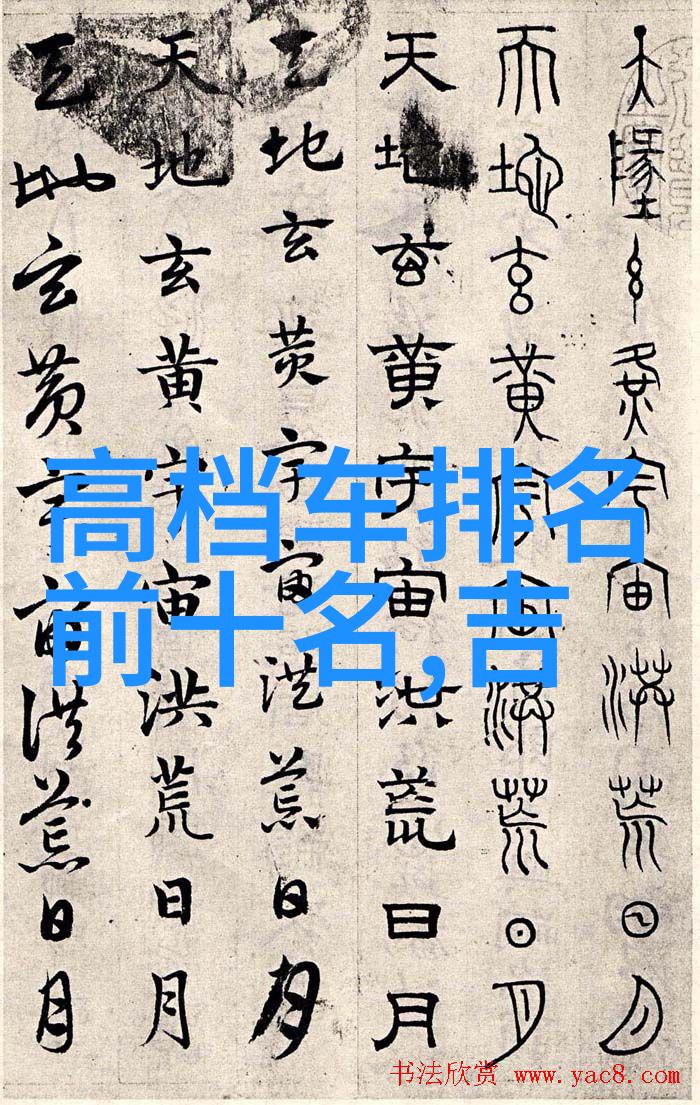 天墬玄黄宇宙洪荒日月
天地玄黄宇宙洪荒日月
天地玄黄宇宙洪荒日月
天地玄黄宇宙洪荒日月
天地玄黄宇宙洪荒日月
天地玄黄宇宙洪荒日月
高档车排名
前十名,吉
书法欣赏 www.yac8.com